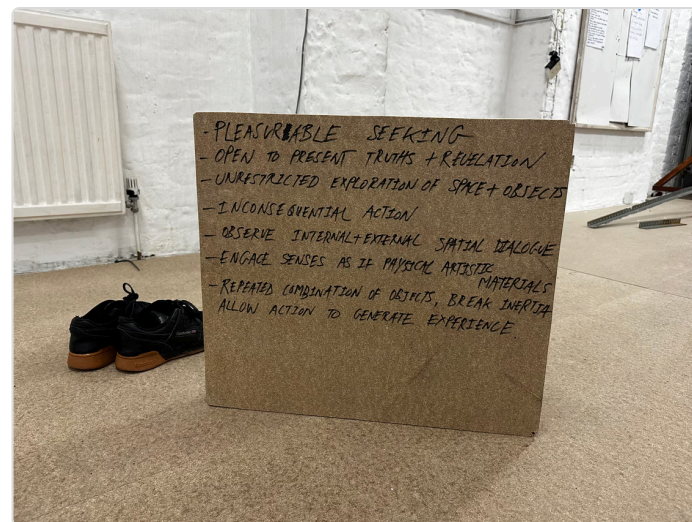 - PLEASURABLE SEEKING
- OPEN TO PRESENT TRUTHS + REVELATION
- UNRESTRICTED EXPLORATION OF SPACE + OBJECTS
- INCONSEQUENTIAL ACTION
- OBSERVE INTERNAL + EXTERNAL SPATIAL DIALOGUE
- ENGAGE SENSES AS IF PHYSICAL ARTISTIC
MATERIALS
- REPEATED COMBINATION OF OBJECTS, BREAK INERTIA
ALLOW ACTION TO GENERATE EXPERIENCE.